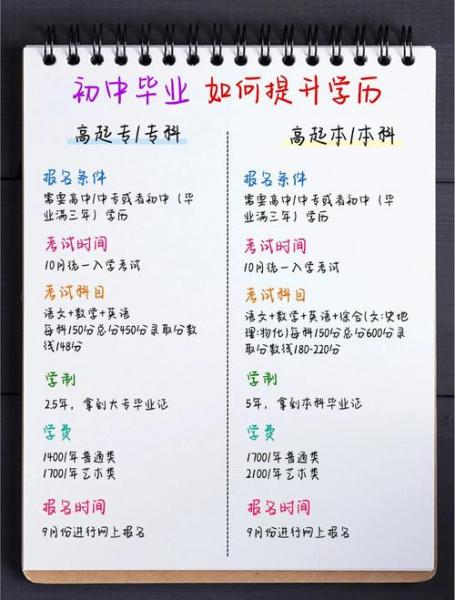 初中毕业 如何提升学历
高起专/专科
报名条件
需要高中/中专或者初中（毕
业满三年）学历
考试时间
10月统一入学考试
考试科目
语文+数学+英语
每科150分总分450分录取分数
线148分
学制
2.5年，拿到大专毕业证
学费
1400/年普通类
1700/年艺术类
报名时间
9月份进行网上报名
高起本/本科
报名条件
需要高中/中专或者初中（毕
业满三年）学历
考试时间
10月统一入学考试
考试科目
语文+数学+英语+综合(文:史地
理:物化)每科150分总分600分录
取分数线180-220分
学制
5年，拿到本科毕业证
学费
1700/年普通类
2100/年艺术类
报名时间
9月份进行网上报名